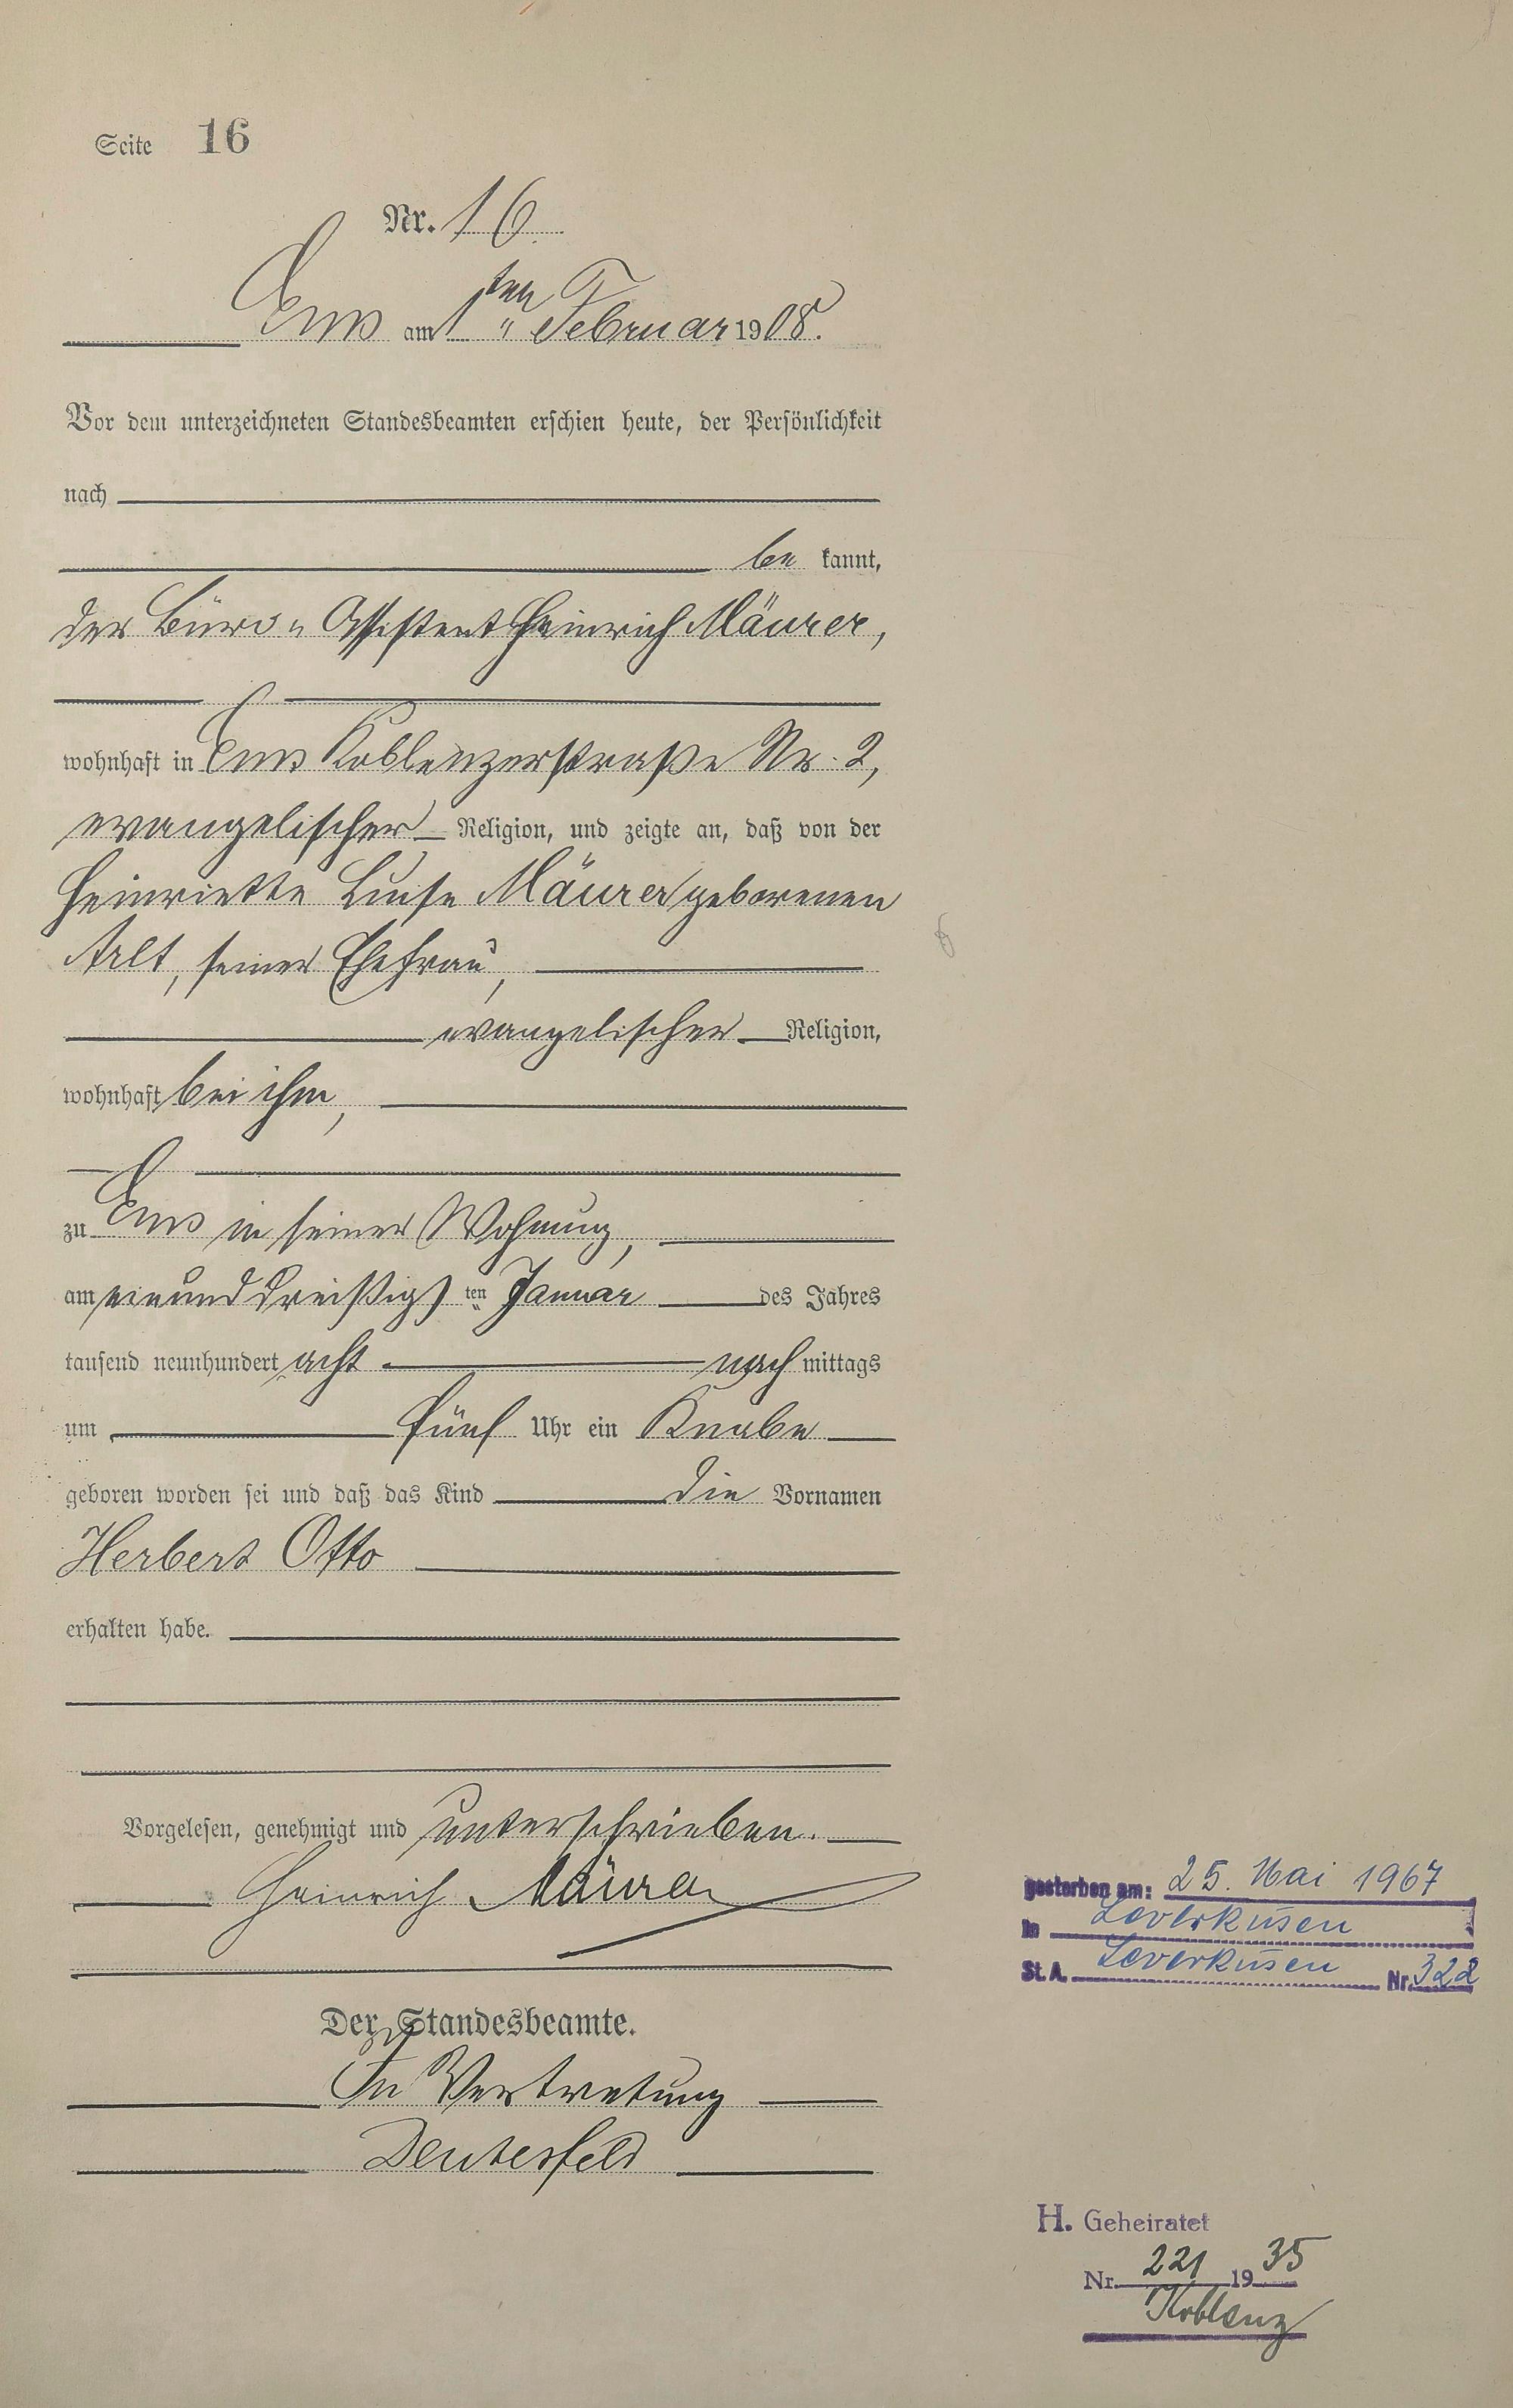 Seite 16
Nr. 16.
Ems am 1ten Februar 1908.
Vor dem unterzeichneten Standesbeamten erschien heute, der Persönlichkeit
nach
be kannt,
der Büro-Assistent Heinrich Mäurer,
wohnhaft in Ems Koblenzerstraße Nr. 2,
evangelischer Religion, und zeigte an, daß von der
Heinriette Luise Mäurer geborenen
Arlt, seiner Ehefrau,
evangelischer Religion,
wohnhaft bei ihm,
zu Ems in seiner Wohnung,
am einunddreißigsten Januar des Jahres
tausend neunhundert acht nachmittags
um fünf Uhr ein Knabe
geboren worden sei und daß das Kind die Vornamen
Herbert Otto
erhalten habe.
Vorgelesen, genehmigt und unterschrieben.
Heinrich Mäurer
Der Standesbeamte.
In Vertretung
Deutesfeld
gestorben am: 25. Mai 1967
in Leverkusen
St. A. Leverkusen Nr. 322
H. Geheiratet
Nr. 221 1935
Koblenz